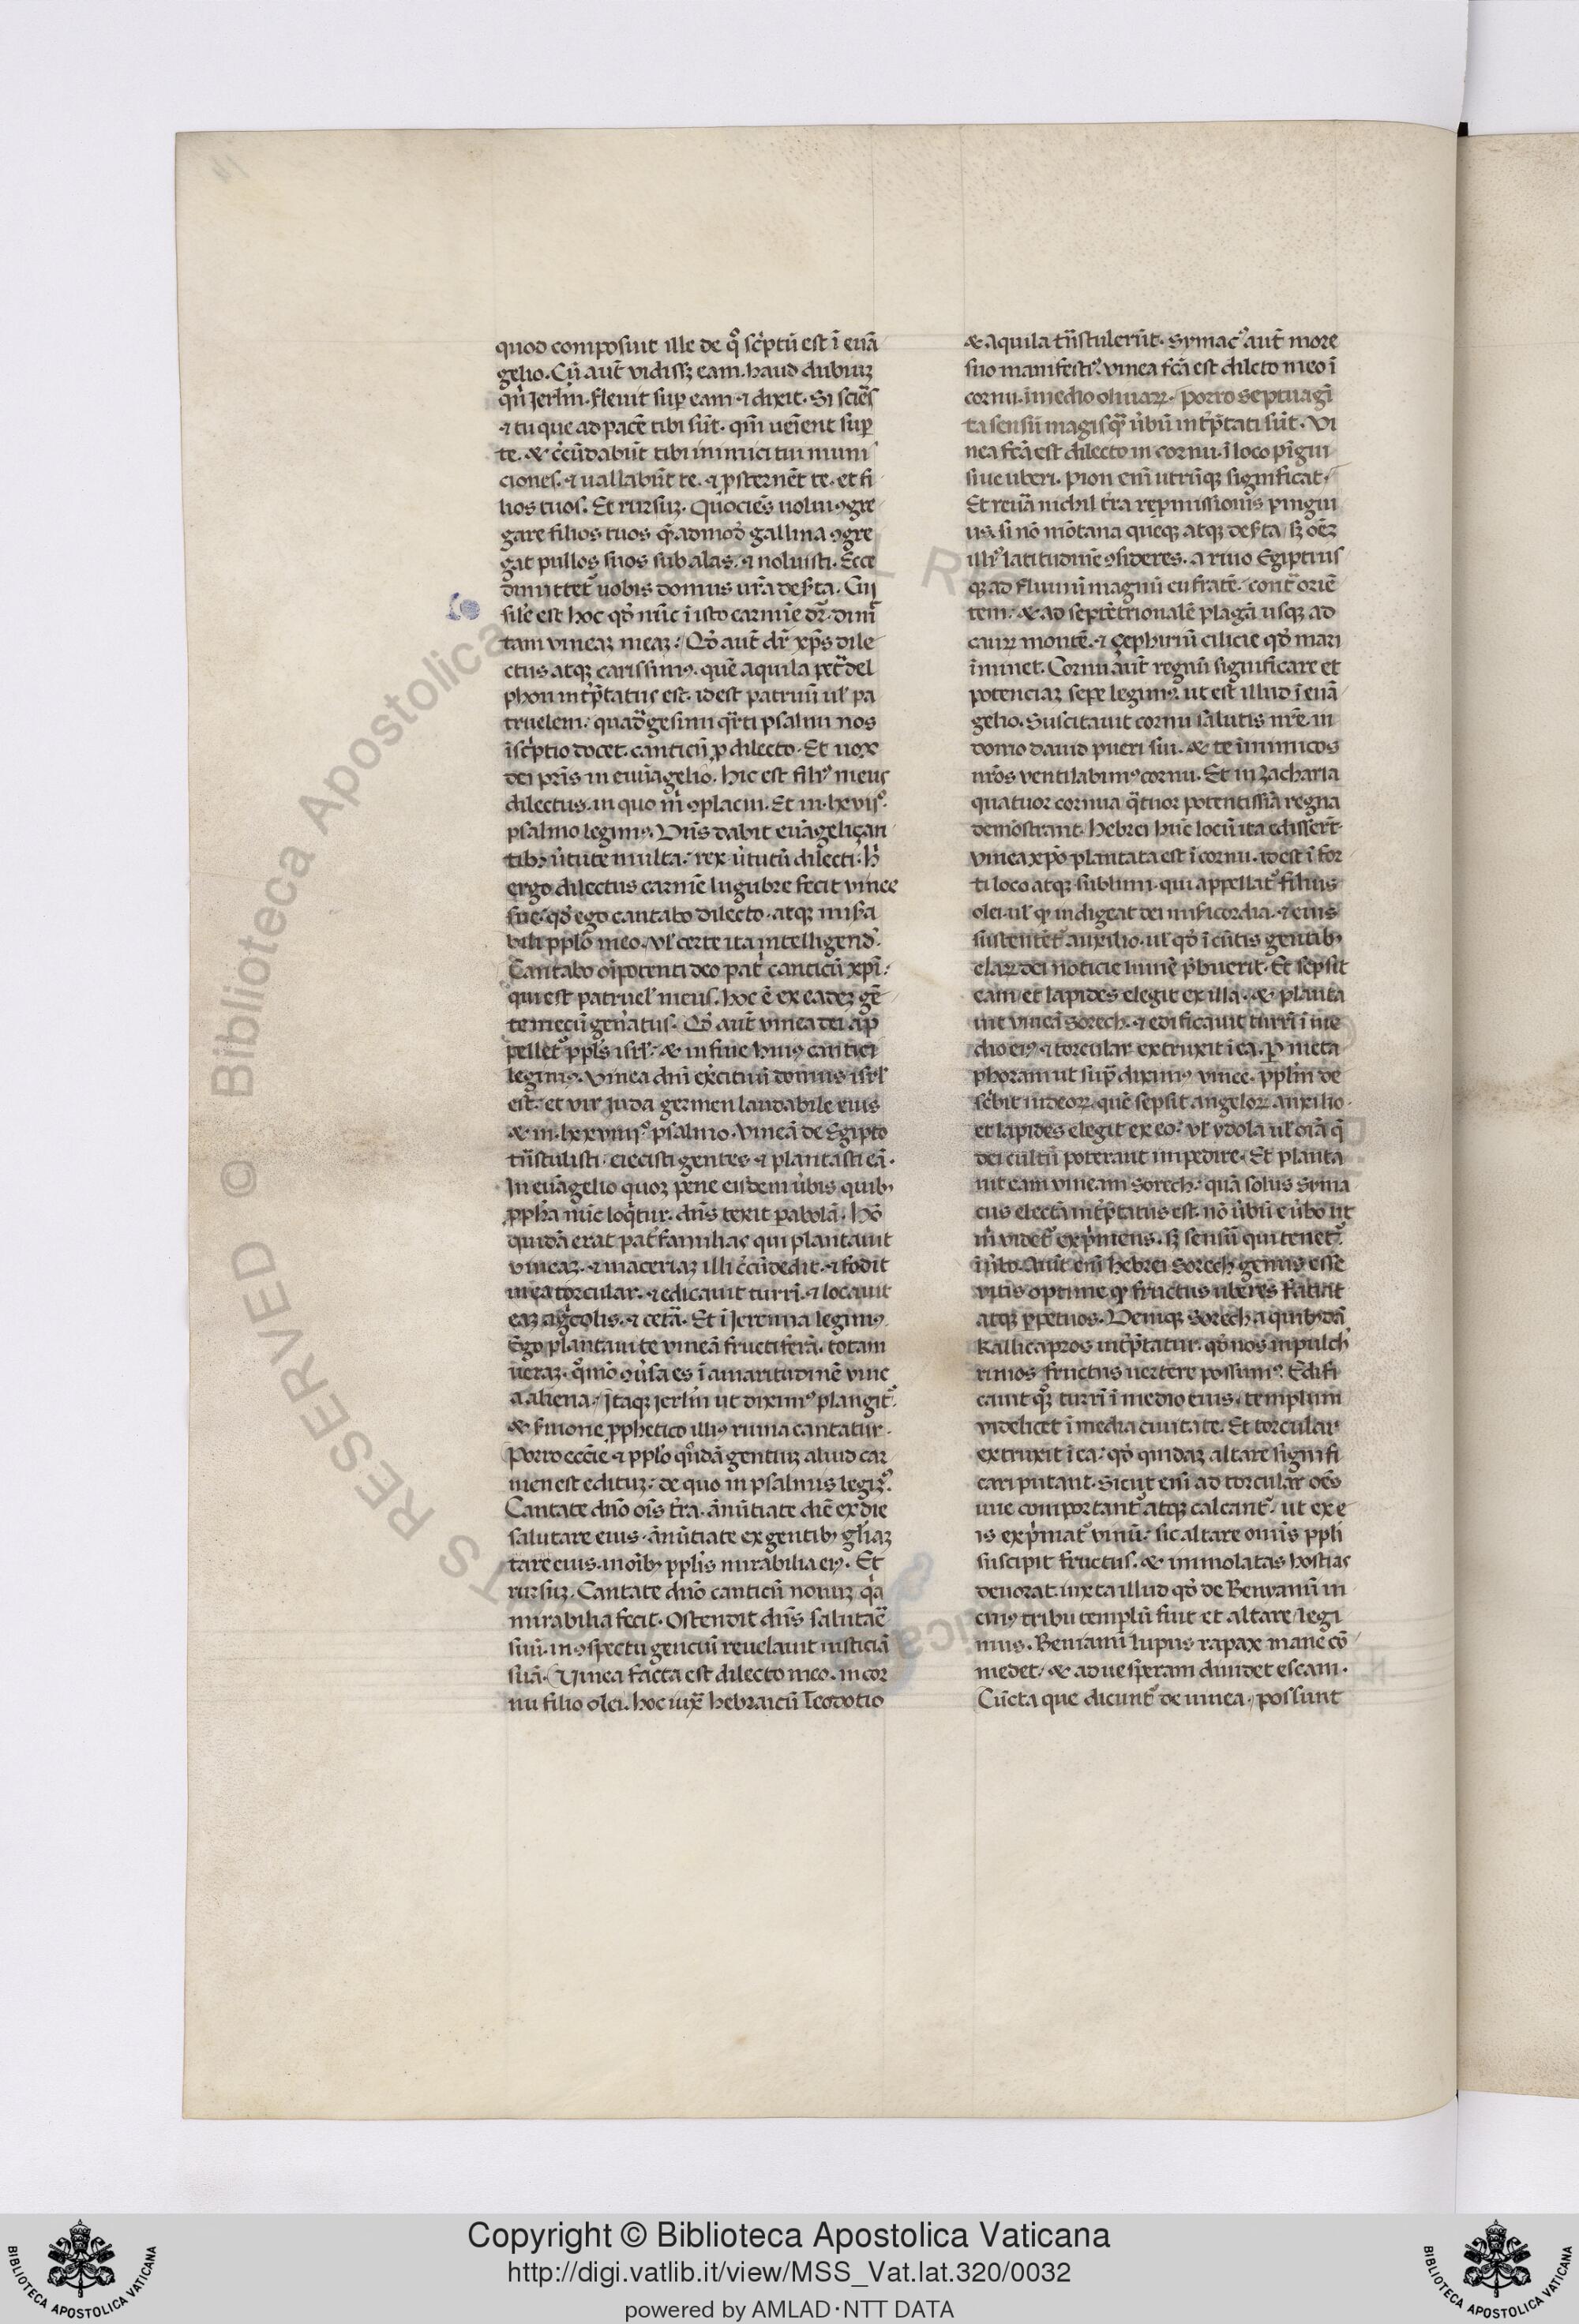 quod composuit ille de q̊ sc̓ptū est ī euā
gelio. Cū aut̄ vidiss; eam. haud dubiuȝ
qn̄ Jerlm̄. fleuit suꝑ eam ⁊ dixit. Si sciēs
⁊ tu que ad pacē tibi sūt. qm̄ ueīent suꝑ
te. & c̄cūdabūt tibi inimici tui muni
ciones. ⁊ uallabūt te. ⁊ ꝓsternēt te. et fi
lios tuos. Et rursuȝ. Quociēs uolui ꝯgre
gare filios tuos q̄admod̄ gallina ꝯgre
gat pullos suos sub alas. ⁊ noluisti. Ecce
dimittet᷒ uobis domus ur̄a des̓ta. Cui
sil̓e est hoc qd̓ nūc ī isto carmīe dr̄. dimī
tam vineaȝ meaȝ. Qd̓ aut̄ dr̄ xp̄s dile
ctus atqȝ carissimꝰ. quē aquila pet̓del
phon int̓p̄tatus est. id est patruū ul̓ pa
truelem. quad̓gesimi qr̄ti psalmi nos
īsc̓ptio docet. canticū ꝓ dilecto. Et uox
dei pr̄is in euāgelio. hic est filiꝰ meus
dilectus. in quo m̓ ꝯplacui. Et in. lxvijº.
psalmo legimꝰ. Dn̄s dabit euāgeliçan
tibꝰ ūtute multa. rex ūtutū dilecti. h̓
ergo dilectus carmē lugubre fecit vinee
sue. qd̓ ego cantabo dilecto. atqȝ mis̓a
bili pplo̓ meo. Vl̓ certe ita intelligend̓.
Cantabo oīpotenti deo pat̓ canticū xpī.
qui est patruel̓ meus. hoc ē ex eadeȝ gē
te mecū gen̓atus. Qd̓ aut̄ vinea dei ap
pellet᷒ ppl̓s isrl̓. & in fine huiꝰ cantici
legimꝰ. Vinea dn̄i exc̓ituū domus isrl̓
est. et vir Juda germen laudabile eius
& in. lxxviiijº psalmo. Vineā de Egipto
tn̄stulisti. eiecisti gentes ⁊ plantasti eā.
In euāgelio quoȝ pene eisdem ūbis quibꝰ
ꝓpha nūc loq̄tur. dn̄s texit ꝑabolā. Hō
quidā erat pat̓familias qui plantauit
vineaȝ. ⁊ maceriaȝ illi c̄cūdedit. ⁊ fodit
in ea torcular. ⁊ edicauit turrī. ⁊ locauit
eaȝ ag̓colis. ⁊ cet̓a. Et ī Jeremia legimꝰ
Ego plantaui te vineā fructiferā. totam
ueraȝ. q̊mō ꝯūsa es ī amaritudinē vine
a aliena. Itaqȝ Jerlm̄ ut diximꝰ plangit᷒.
& s̓mone ꝓphetico illiꝰ ruina cantatur.
Porro eccĺe ⁊ pplo̓ q̊ndā gentiuȝ aliud car
men est edituȝ. de quo in psalmis legiꝰ.
Cantate dn̄o oīs tr̓a. ānūtiate diē ex die
salutare eius. ānūtiate ex gentibꝰ gl̓iaȝ
tare eius. in oībꝰ ppl̓is mirabilia eiꝰ. Et
rursuȝ. Cantate dn̄o canticū nouuȝ q̓a
mirabilia fecit. Ostendit dn̄s salutae̓
suū. in ꝯspectu genciū reuelauit iusticiā
suā. Uinea facta est dilecto meo. in cor
nu filio olei. hoc iuxᵃ hebraicū Teodotio
& Aquila tn̄stulerūt. Symacꝰ aut̄ more
suo manifestiꝰ. vinea fc̄a est dilcto meo ī
cornu. ī medio oliuaꝝ. Porro septuagī
ta sensū magis qᷓ ūbū int̓p̄tati sūt. Vi
nea fc̄a est dilecto in cornu. ī loco pīgui
siue uberi. Pion enī utrūqȝ significat.
Et reuā nichil tr̓a repmissionis pingui
us. si nō mōtana queqȝ atqȝ des̓ta. sȝ oēȝ
illiꝰ latitudinē ꝯsideres. a riuo Egiptius
qȝ ad fluuiū magnū eufratē. cont̓ oriē
tem. & ad septētrionalē plagā usqȝ ad
tauꝝ montē. ⁊ çephiriū cilicie qd̓ mari
īminet. Cornu aut̄ regnū significare et
potenciaȝ sepe legimꝰ. ut est illud ī euā
gelio. Suscitauit cornu salutis nr̄e in
domo dauid pueri sui. & te inimicos
nr̄os ventilabimꝰ cornu. Et in Zacharia
quatuor cornua q̄tuor potentissīa regna
demōstrant. Hebrei hūc locū ita edisserūt.
vinea xp̄o plantata est ī cornu. id est ī for
ti loco atqȝ sublimi. qui appellat᷒ filius
olei. ul̓ ꝙ indigeat dei misericordia. ⁊ eius
sustentet᷒ auxilio. ul̓ qd̓ ī cūtis gentibꝰ
claꝝ dei noticie lumē p̄buerit. Et sepsit
eam et lapides elegit ex illa. & planta
uit vineā Sorech. ⁊ edificauit turrī ī me
dio eiꝰ ⁊ torcular extruxit ī ea. ꝑ meta
phoram ut sup̄ diximꝰ vinee. ppl̓m de
sc̓bit iudeoꝝ. quē sepsit angeloꝝ auxilio.
et lapides elegit ex eo. ul̓ ydola ul̓ oīa q̄
dei cultū poterant impedire. Et planta
uit eam vineam Sorech. quā solus Syma
cus electā int̓p̄tatus est. nō ūbū e ūbo ut
m̓ videt᷒ exp̓mens. sȝ sensū qui tenet᷒.
ī ūbo. Aiūt enī hebrei Sorech genus esse
vitis optime ꝙ fructus uberes faciat
atqȝ ꝑpetuos. Deniqȝ Sorech a quibꝰdā
Kallicapros int̓p̄tatur. qd̓ nos in pulch̓
rimos fructus uertere possumꝰ. Edifi
cauit qȝ turrī ī medio eius. templum
videlicet ī media ciuitate. Et torcular
extruxit ī ea. qd̓ quidaȝ altare signifi
cari putant. Sicut enī ad torcular oēs
uue comportant᷒ atqȝ calcant᷒. ut ex e
is exp̓mat᷒ vinū. sic altare omīs ppl̓i
suscipit fructus. & immolatas hostias
deuorat. iuxta illud qd̓ de Beniamī in
cuiꝰ tribu templū fuit et altare legi
mus. Beniamī lupus rapax mane cō
medet. & ad uesperam diuidet escam.
Cūcta que dicunt᷒ de uinea. possunt
Copyright © Biblioteca Apostolica Vaticana
http://digi.vatlib.it/view/MSS_Vat.lat.320/0032
powered by AMLAD·NTT DATA
BIBLIOTECA APOSTOLICA VATICANA
BIBLIOTECA APOSTOLICA VATICANA